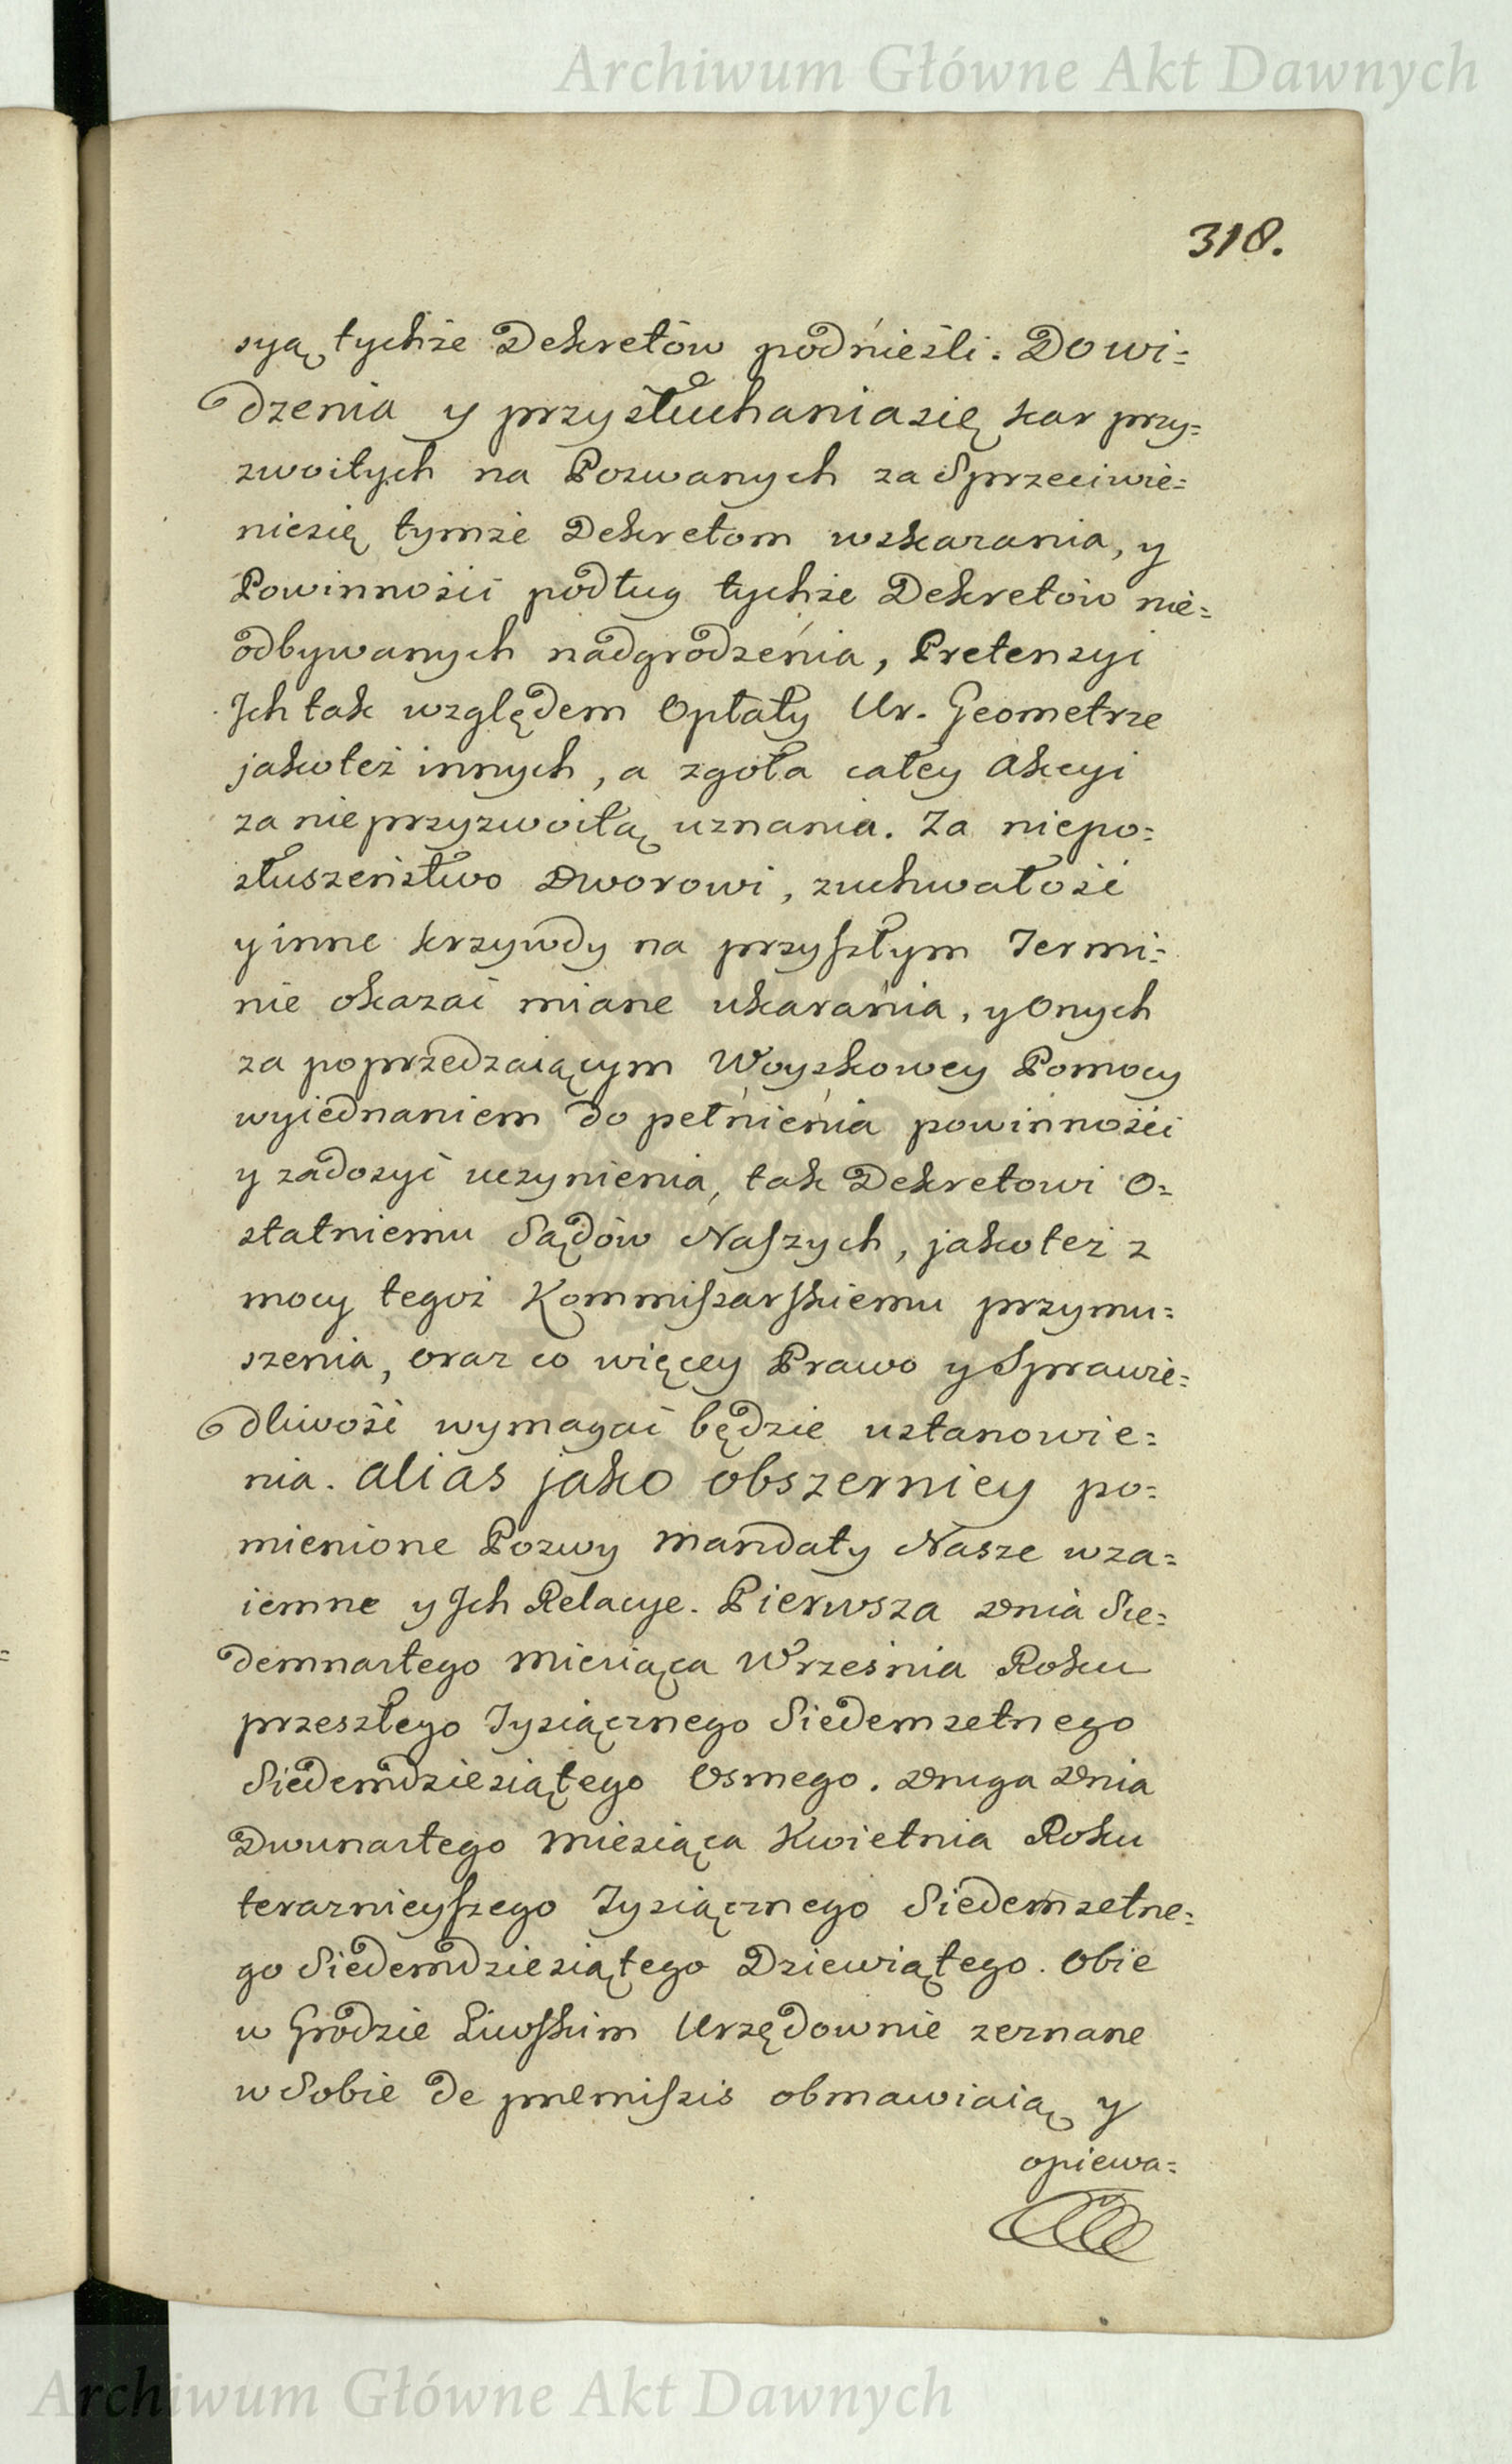 Archiwum Główne Akt Dawnych
318.
syą tychże Dekretów podnieśli. Do wi=
dzenia y przysłuchania się kar przy=
zwoitych na Pozwanych za Sprzeciwie=
nie się tymże Dekretom wskazania, y
Powinności podług tychże Dekretów nie=
odbywanych nadgrodzenia, Pretensyi
Ich tak względem Opłaty Ur. Geometrze
jako też innych, a zgoła całey Akcyi
za nie przyzwoitą uznania. Za niepo=
słuszeństwo Dworowi, zuchwałość
y inne krzywdy na przyszłym Termi=
nie okazać miane ukarania, y Onych
za poprzedzaiącym Woyskowey Pomocy
wyiednaniem do pełnienia powinności
y zadosyć uczynienia, tak Dekretowi O=
statniemu Sądów Naszych, jako też z
mocy tegoż Kommissarskiemu przymu=
szenia, oraz co więcey Prawo y Sprawie=
dliwość wymagać będzie ustanowie=
nia. alias jako obszerniey po=
mienione Pozwy Mandaty Nasze wza=
iemne y Ich Relacye. Pierwsza Dnia Sie=
demnastego Miesiąca Września Roku
przeszłego Tysiącznego Siedemsetnego
Siedemdziesiątego Osmego. Druga Dnia
Dwunastego Miesiąca Kwietnia Roku
teraznieyszego Tysiącznego Siedemsetne=
go Siedemdziesiątego Dziewiątego. Obie
w Grodzie Liwskim Urzędownie zeznane
w Sobie de premissis obmawiaią y
opiewa=
Archiwum Główne Akt Dawnych